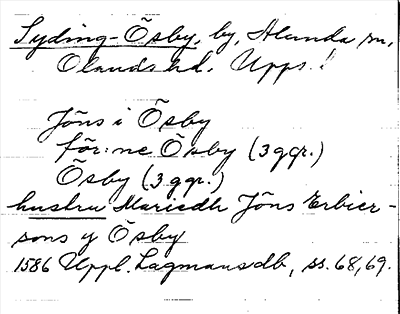 Syding-Õsby, by, Alunda sn,
Olands hd. Upps. l
Jõns i Õsby
för:ne Õsby (3 ggr.)
Õsby (3 ggr.)
hustru Mariedh Jõns Erbier-
sons y Õsby
1586 Uppl. Lagmansdb, ss. 68, 69.